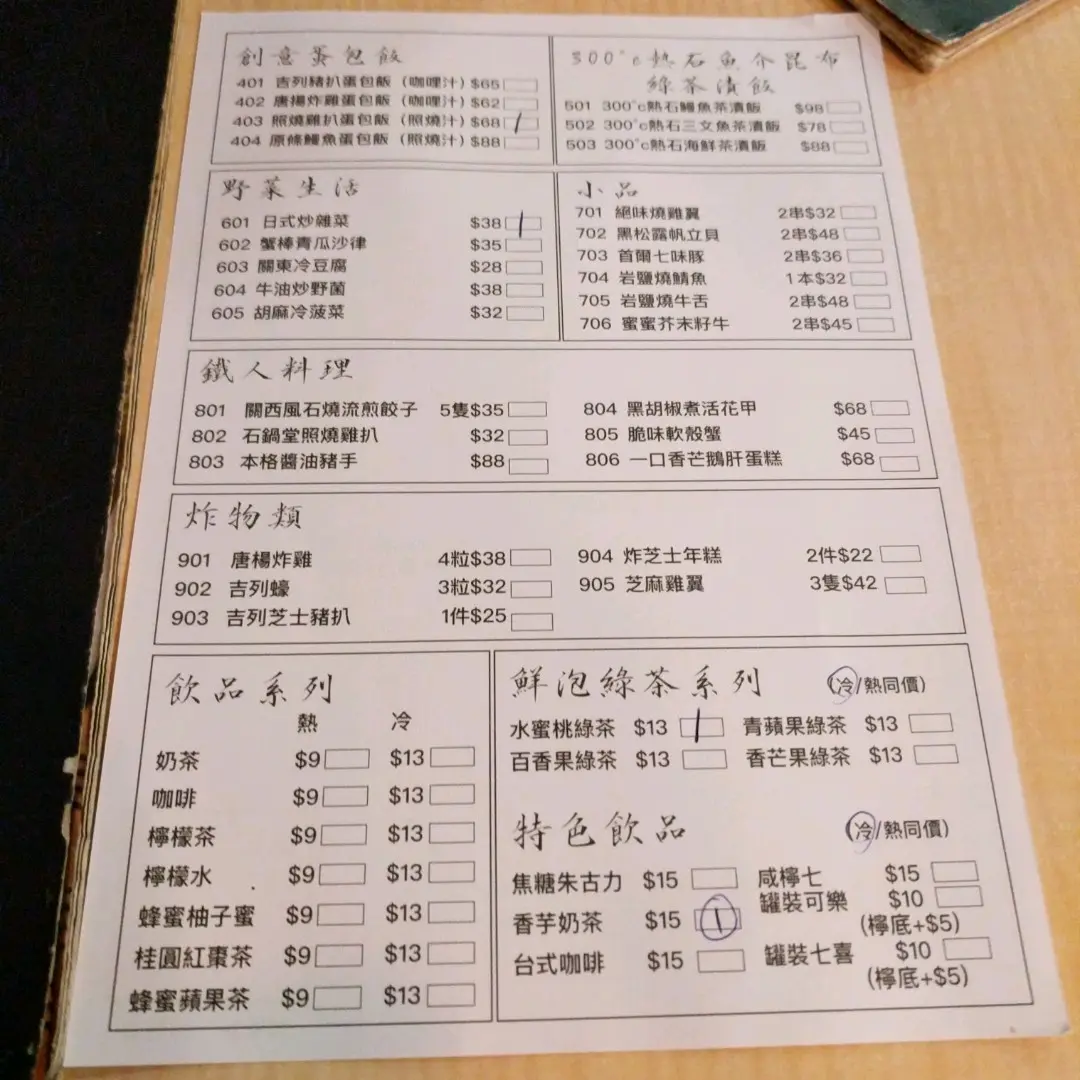 創意蛋包飯
401 吉列豬扒蛋包飯（咖哩汁）$65
402 唐揚炸雞蛋包飯（咖哩汁）$62
403 照燒雞扒蛋包飯（照燒汁）$68 1
404 原條鰻魚蛋包飯（照燒汁）$88
300°c熱石魚介昆布
綠茶漬飯
501 300°c熱石鰻魚茶漬飯 $98
502 300°c熱石三文魚茶漬飯 $78
503 300°c熱石海鮮茶漬飯 $88
野菜生活
601 日式炒雜菜 $38 1
602 蟹棒青瓜沙律 $35
603 關東冷豆腐 $28
604 牛油炒野菌 $38
605 胡麻冷菠菜 $32
小品
701 絕味燒雞翼 2串$32
702 黑松露帆立貝 2串$48
703 首爾七味豚 2串$36
704 岩鹽燒鯖魚 1本$32
705 岩鹽燒牛舌 2串$48
706 蜜蜜芥末籽牛 2串$45
鐵人料理
801 關西風石燒流煎餃子 5隻$35
802 石鍋堂照燒雞扒 $32
803 本格醬油豬手 $88
804 黑胡椒煮活花甲 $68
805 脆味軟殼蟹 $45
806 一口香芒鵝肝蛋糕 $68
炸物類
901 唐楊炸雞 4粒$38
902 吉列蠔 3粒$32
903 吉列芝士豬扒 1件$25
904 炸芝士年糕 2件$22
905 芝麻雞翼 3隻$42
飲品系列
熱 冷
奶茶 $9 $13
咖啡 $9 $13
檸檬茶 $9 $13
檸檬水 $9 $13
蜂蜜柚子蜜 $9 $13
桂圓紅棗茶 $9 $13
蜂蜜蘋果茶 $9 $13
鮮泡綠茶系列 (冷/熱同價)
水蜜桃綠茶 $13 1 青蘋果綠茶 $13
百香果綠茶 $13 香芒果綠茶 $13
特色飲品 (冷/熱同價)
焦糖朱古力 $15
香芋奶茶 $15 1
台式咖啡 $15
咸檸七 $15
罐裝可樂 $10
(檸底+$5)
罐裝七喜 $10
(檸底+$5)